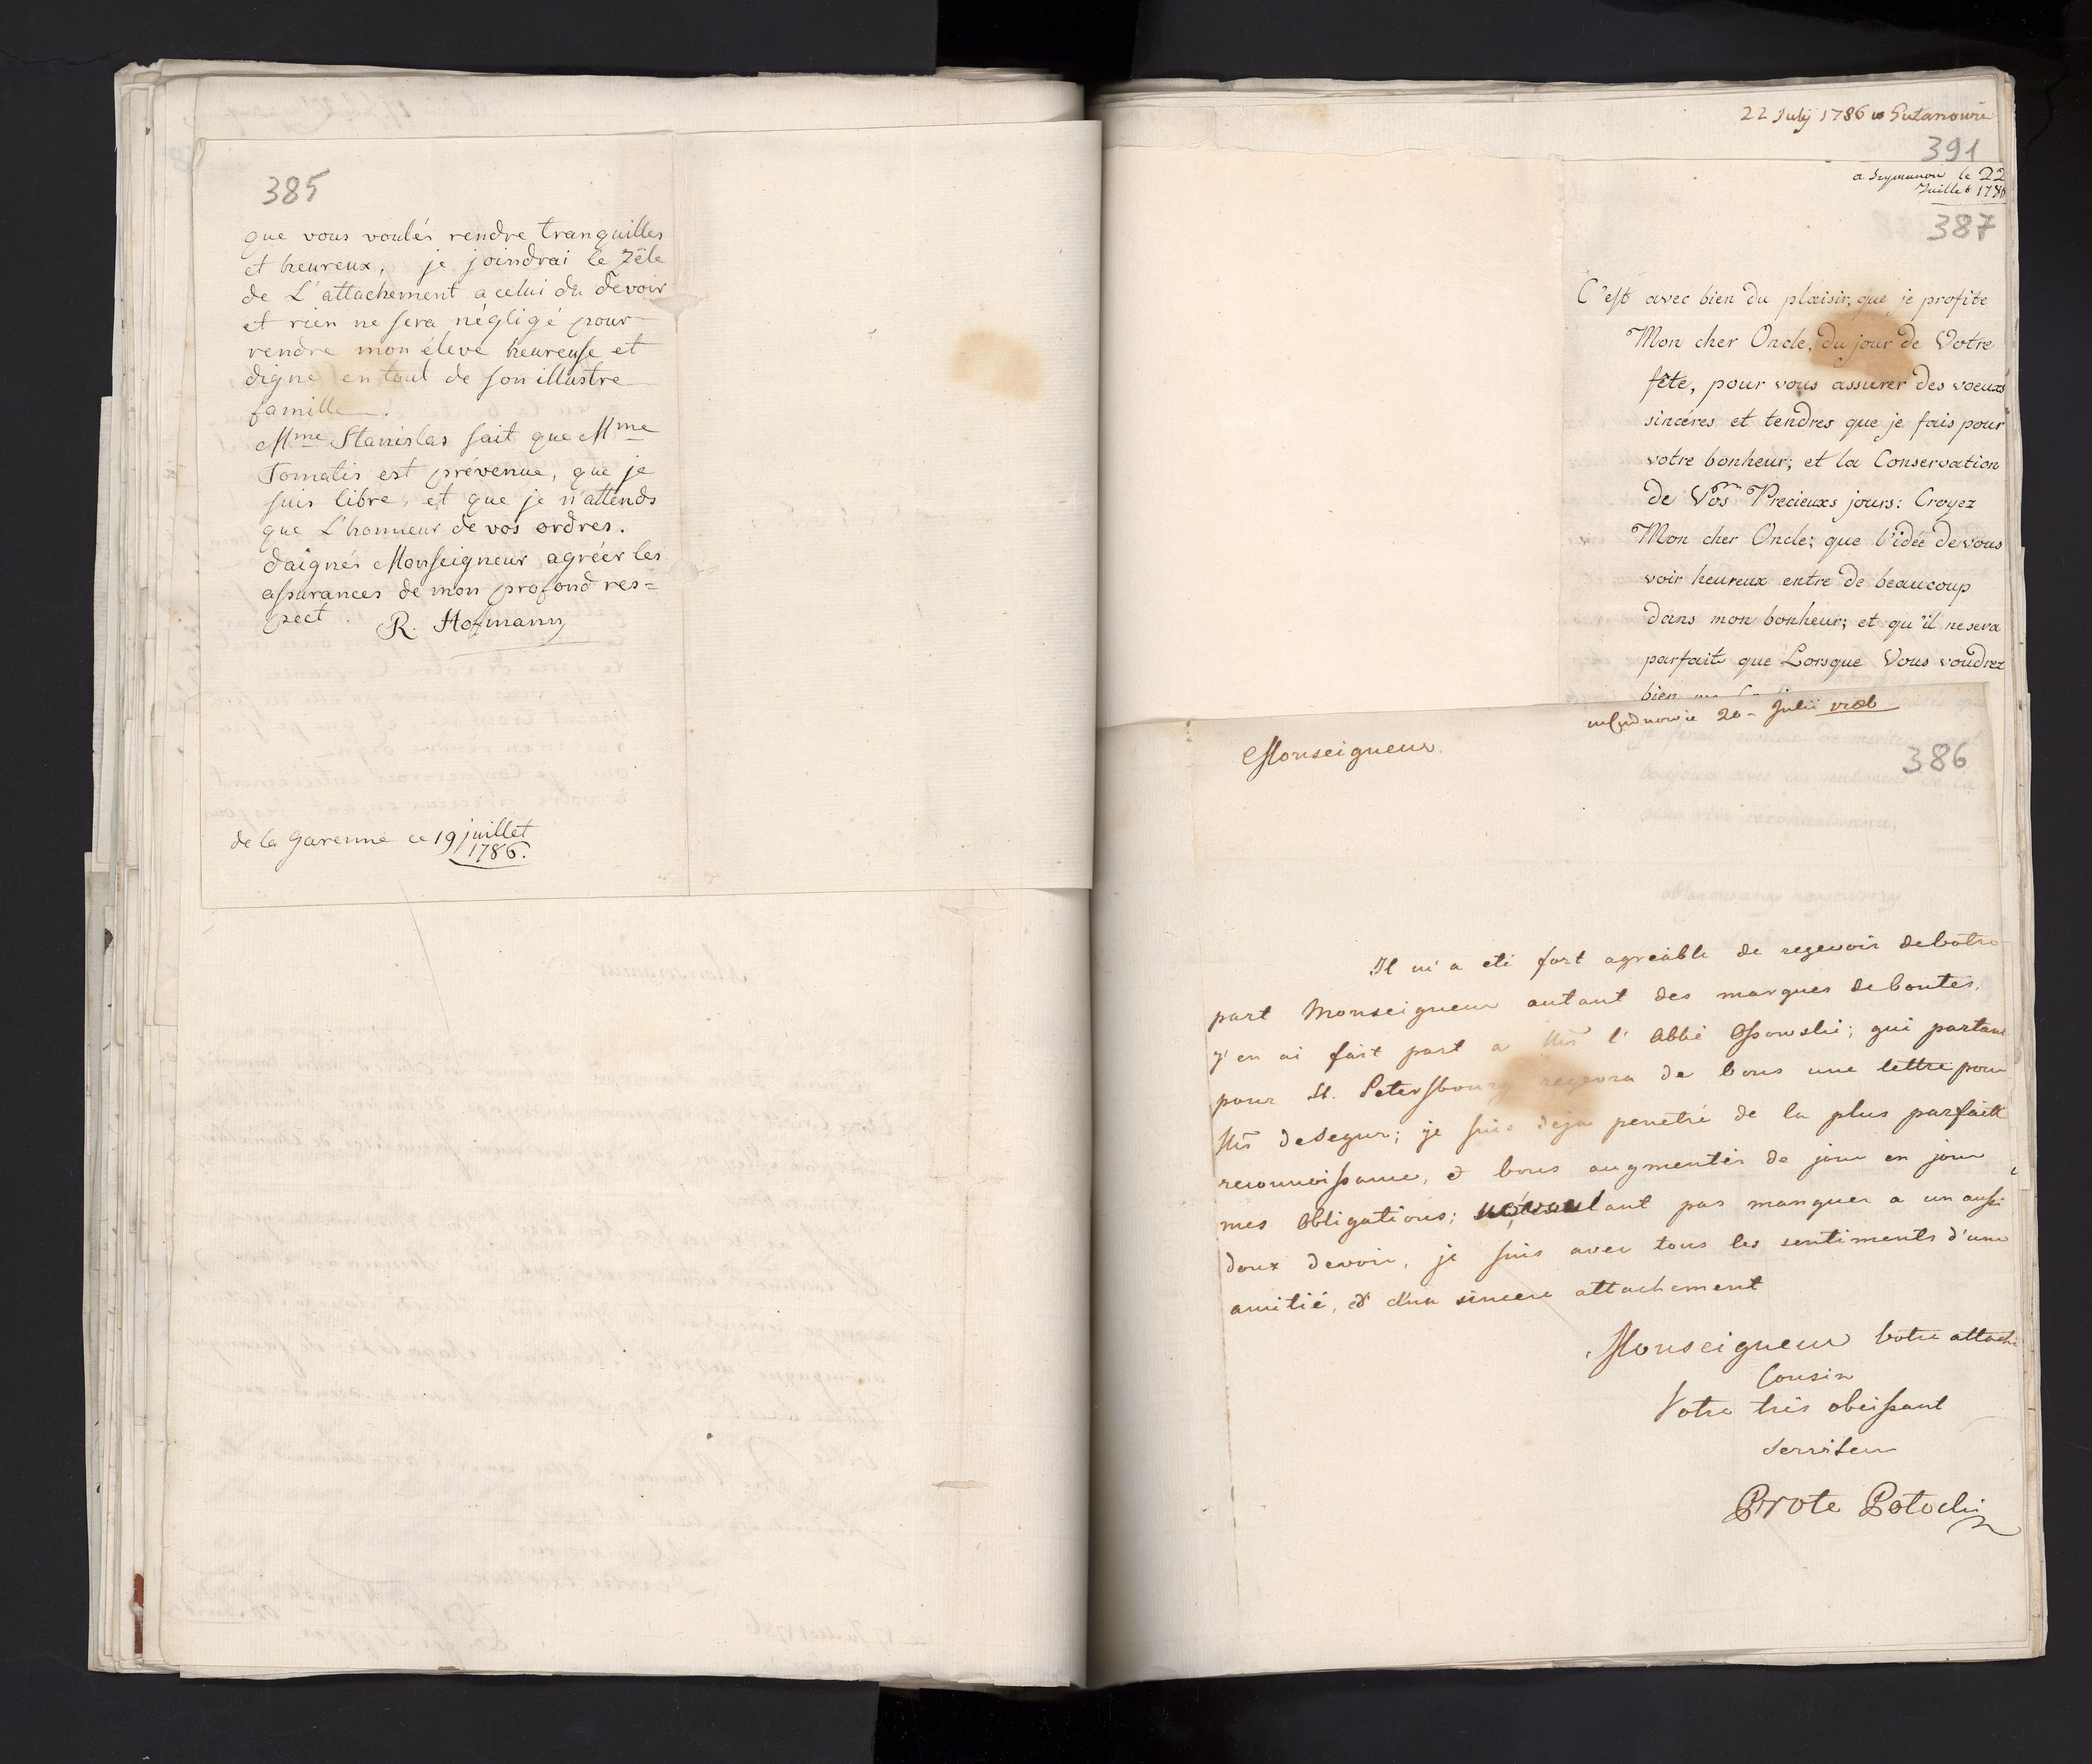 385
que vous voulés rendre tranquilles
et heureux, je joindrai le zêle
de L'attachement a celui du devoir
et rien ne sera négligé pour
rendre mon éleve heureuse et
digne en tout de son illustre
famille.
Mme Stanislas sait que Mme
Tomatis est prévenue, que je
suis libre, et que je n'attends
que L'honneur de vos ordres.
daignés Monseigneur agréer les
assurances de mon profond res=
pect. R. Hofmann
de la Garenne ce 19 juillet
1786.
22 July 1786 w
391
a le 22
Juillet 1786
387
C'est avec bien du plaisir, que je profite
Mon cher Oncle, du jour de Votre
fête, pour vous assurer des voeux
sincéres et tendres que je fais pour
votre bonheur; et la Conservation
de Vos Precieuxs jours: Croyez
Mon cher Oncle; que l'idée de vous
voir heureux entre de beaucoup
dans mon bonheur; et qu'il ne sera
parfait que Lorsque Vous voudrez
bien
w Cudnowie 20 Julii
386
Monseigneur.
Il m'a eté fort agréable de reçevoir de votre
part Monseigneur autant des marques de bontés,
j'en ai fait part a Mr l'Abbé Ossowski; qui partant
pour St. Petersbourg reçevra de vous une lettre pour
Mr de Segur; je suis deja penetré de la plus parfaite
reconnoissance, & vous augmentés de jour en jour
mes obligations; ne voulant pas manquer a un aussi
doux devoir, je suis avec tous les sentiments d'une
amitié, & d'un sincere attachement
Monseigneur votre attaché
Cousin
Votre très obeissant
serviteur
Prote Potocki